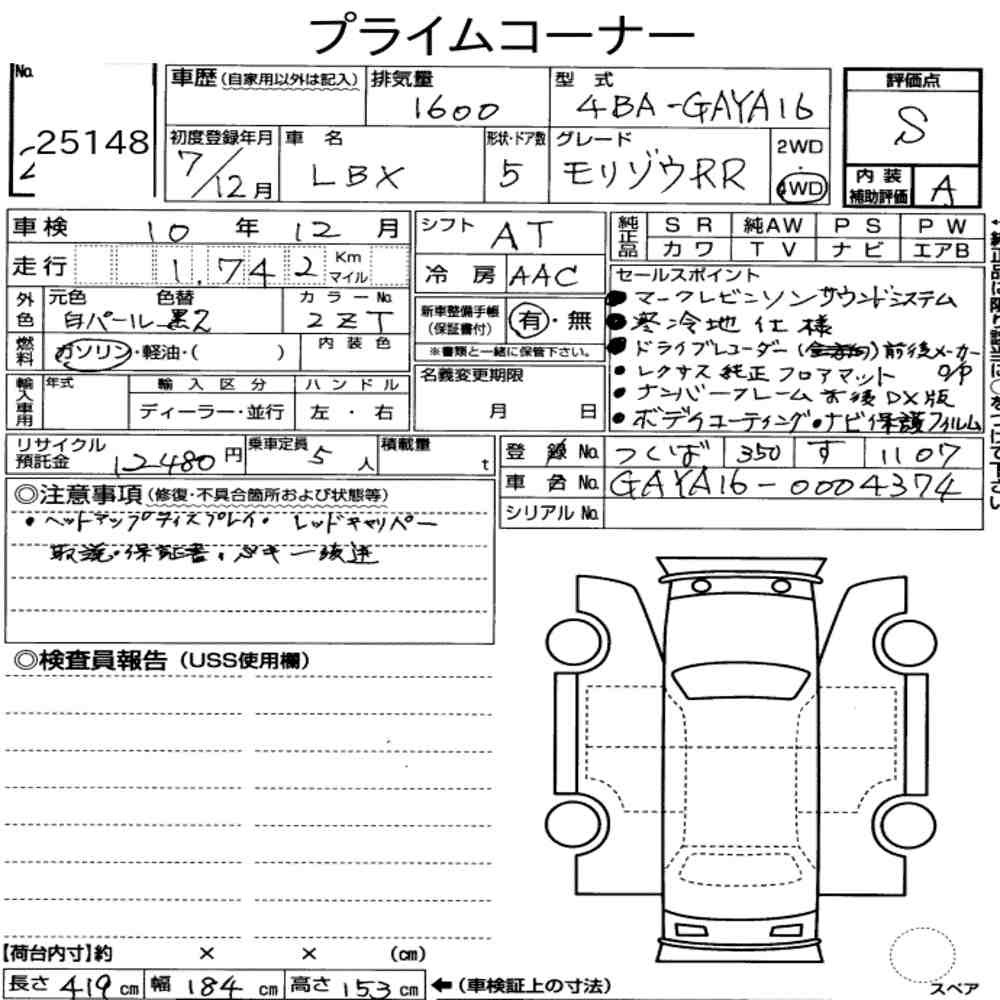 プライムコーナー
No. 25148
車歴（自家用以外は記入）
排気量 1600
型式 4BA-GAYA16
評価点 S
初度登録年月 7/12月
車名 LBX
形状・ドア数 5
グレード モリゾウRR
2WD・4WD
内装補助評価 A
車検 10年12月
シフト AT
純正品 SR 純AW PS PW
カワ TV ナビ エアB
走行 1,742 Km マイル
冷房 AAC
セールスポイント
・マークレビンソンサウンドシステム
・寒冷地仕様
・ドライブレコーダー（ ）前後メーカーO/P
・レクサス純正フロアマット
・ナンバーフレーム前後DX版
・ボディコーティング・ナビ保護フィルム
外色 元色 白パール 色替 黒2
カラーNo. 2ZT
新車整備手帳（保証書付） 有・無
※書類と一緒に保管下さい。
燃料 ガソリン・軽油・（ ）
内装色
名義変更期限 月 日
輸入車用 年式 輸入区分 ハンドル
ディーラー・並行 左・右
リサイクル預託金 12480円
乗車定員 5人
積載量 t
登録No. つくば 350 す 1107
車台No. GAYA16-0004374
シリアルNo.
◎注意事項（修復・不具合箇所および状態等）
・ヘッドアップディスプレイ・レッドキャリパー
取説・保証書・スキー後送
◎検査員報告（USS使用欄）
【荷台内寸】約 × × （cm）
長さ 419 cm 幅 184 cm 高さ 153 cm ←（車検証上の寸法）
スペア